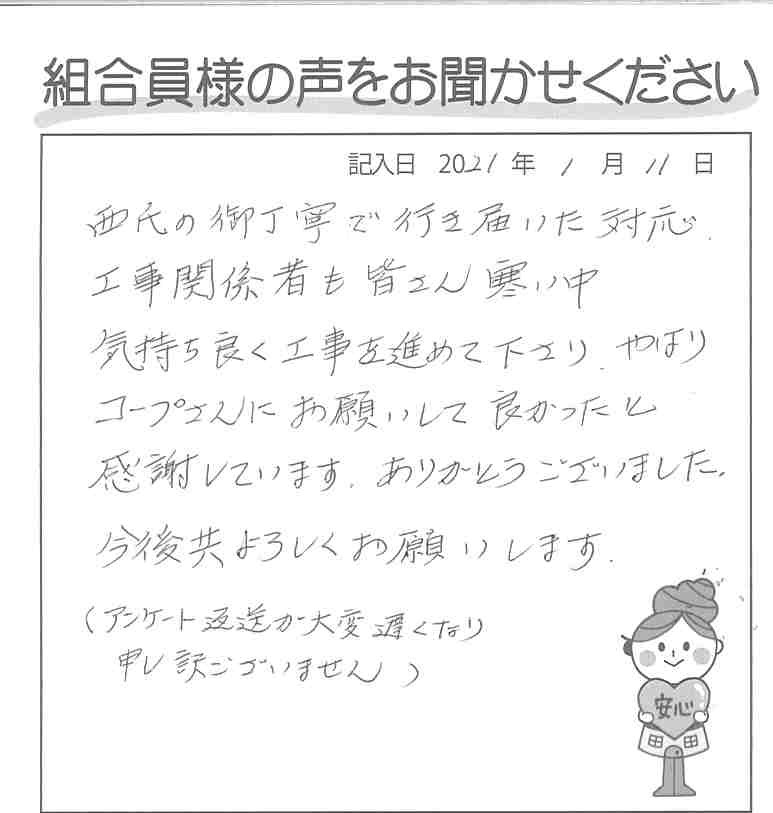 組合員様の声をお聞かせください
記入日 2021年 1月 11日
西氏の御丁寧で行き届いた対応、
工事関係者も皆さん寒い中
気持ち良く工事を進めて下さり、やはり
コープさんにお願いして良かったと
感謝しています。ありがとうございました。
今後共よろしくお願いします。
(アンケート返送が大変遅くなり
申し訳ございません)
安心